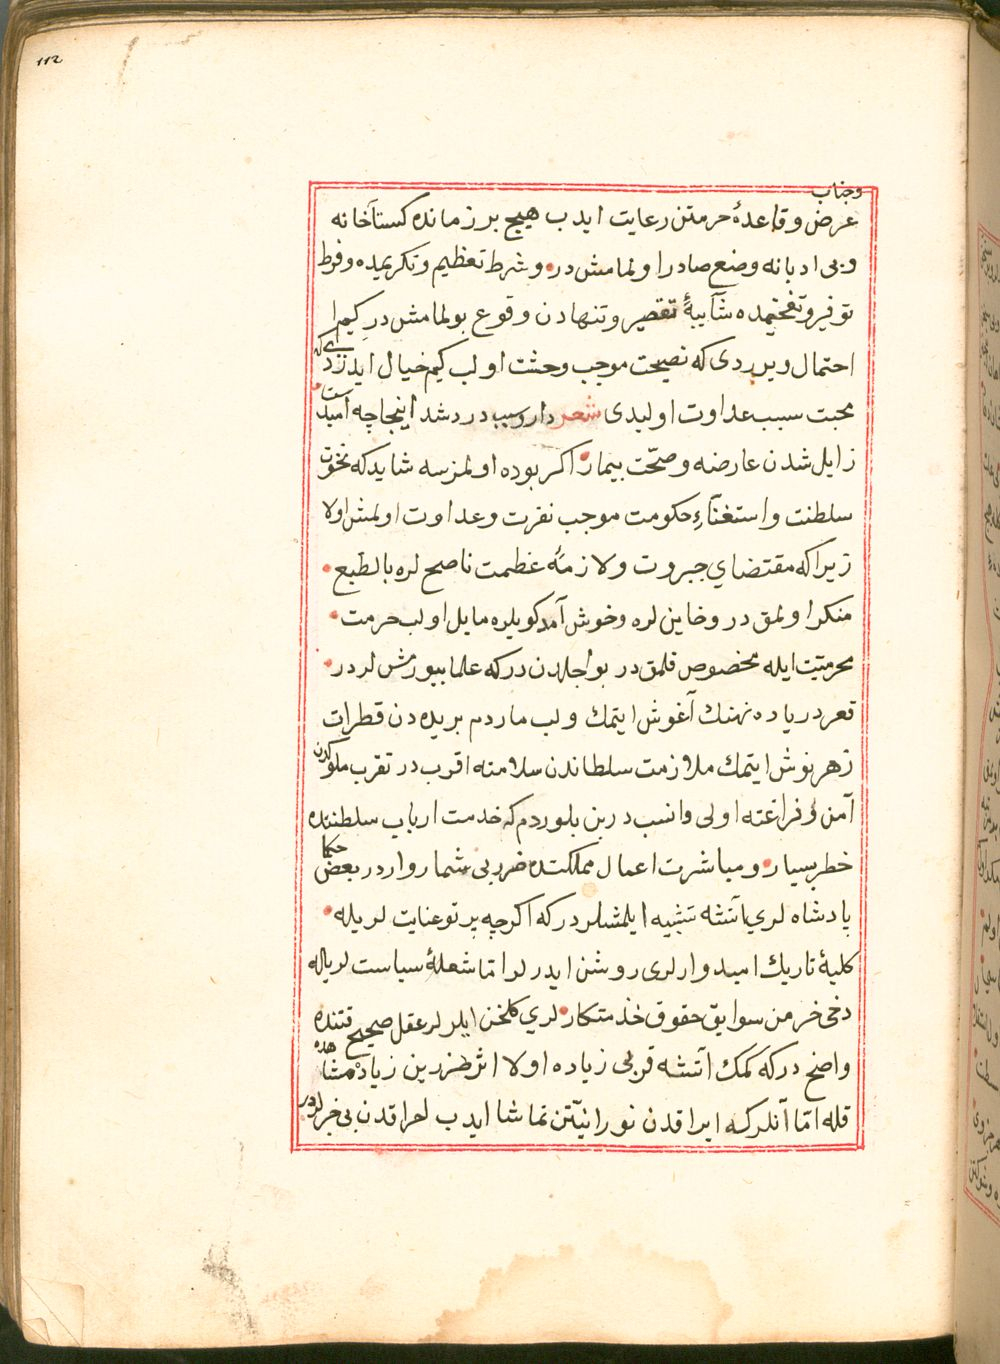 112
وجناب
عرض وقاعدۀ حرمتن رعایت ایدب هیچ بر زمانده کستاخانه
وبی ادبانه وضع صادر اولمامش در وشرط تعظیم وتکریمیده وفرط
توقیر وتفخیمده شائبۀ تقصیر وتنهادن وقوع بولمامش در کیم
احتمال ویرردی که نصیحت موجب وحشت اولب کیم خیال ایدردی که
محبت سبب عداوت اولیدی شعر دارو سبب درد شد اینجا چه امیدست
زایل شدن عارضه وصحّت بیمار اکر بوده اولمزسه شایدکه نخوت
سلطنت واستغنآءِ حکومت موجب نفرت وعداوت اولمش اولا
زیراکه مقتضاي جبروت ولازمۀ عظمت ناصح لره بالطبع
منکر اولمق در وخاین لره وخوش آمد کویلره مایل اولب حرمت
محرمیّت ایله مخصوص قلمق در بو اجلدن درکه علما بیورمش لر در
قعر دریاده نهنك آغوش ایتمك ولب مار دم بریده دن قطرات
زهر نوش ایتمك ملازمت سلطاندن سلامته اقرب در تقرب ملوکدن
آمن وفراغته اولی وانسب در بن بلوردم که خدمت ارباب سلطنتده
خطر بسیار ومباشرت اعمال مملکتده ضرر بی شمار واردر بعض حکما
پادشاه لري آتشه تشبیه ایلمشلردر که اکرچه پرتو عنایت لریله
کلبۀ تاریك امیدوارلری روشن ایدرلر امّا شعلۀ سیاست لریله
دخی خرمن سوابق حقوق خذمتکارلري کلخن ایلرلر عقل صحیح قتنده
واضح درکه کمك آتشه قربی زیاده اولا اثر ضررین زیاده مشاهده
قله امّا آنلرکه ایراقدن نورانیّتن تماشا ایدب احراقدن بی خبرلردر